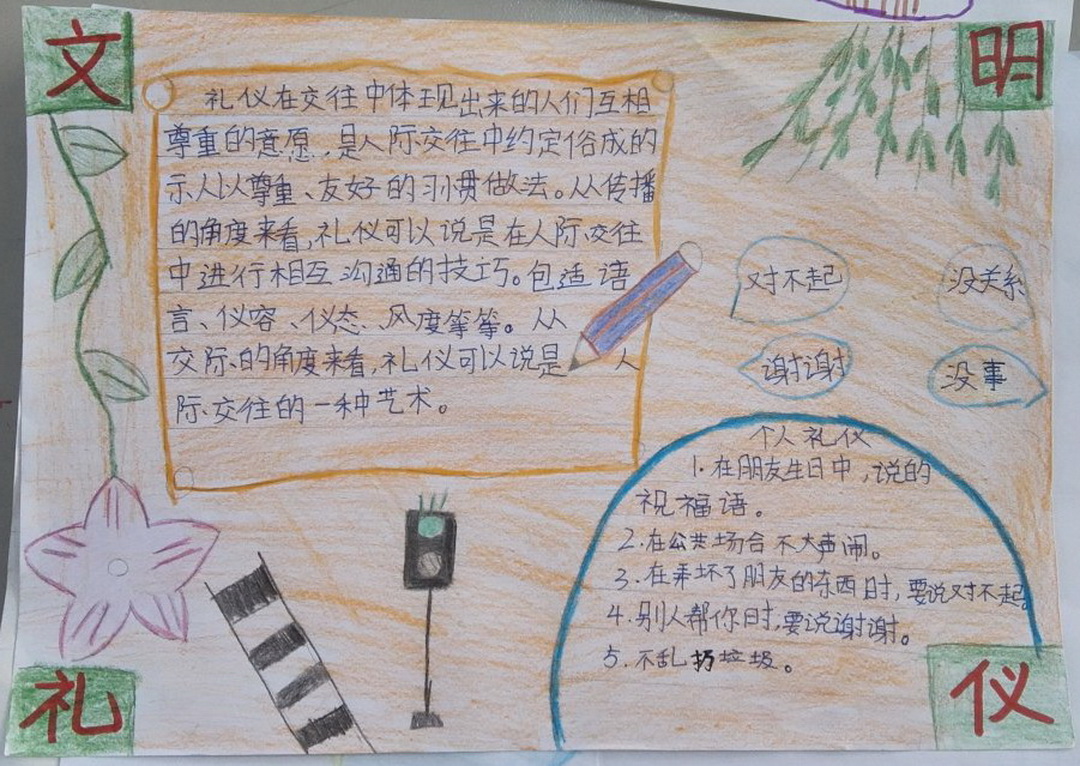 文
明
礼仪在交往中体现出来的人们互相
尊重的意愿,是人际交往中约定俗成的
示人以尊重、友好的习惯做法。从传播
的角度来看,礼仪可以说是在人际交往
中进行相互沟通的技巧。包适语
言、仪容、仪态、风度等等。从
交际的角度来看,礼仪可以说是 人
际交往的一种艺术。
对不起
没关系
谢谢
没事
个人礼仪
1.在朋友生日中,说的
祝福语。
2.在公共场合不大声闹。
3.在弄坏了朋友的东西时,要说对不起。
4.别人帮你时,要说谢谢。
5.不乱扔垃圾。
礼
仪